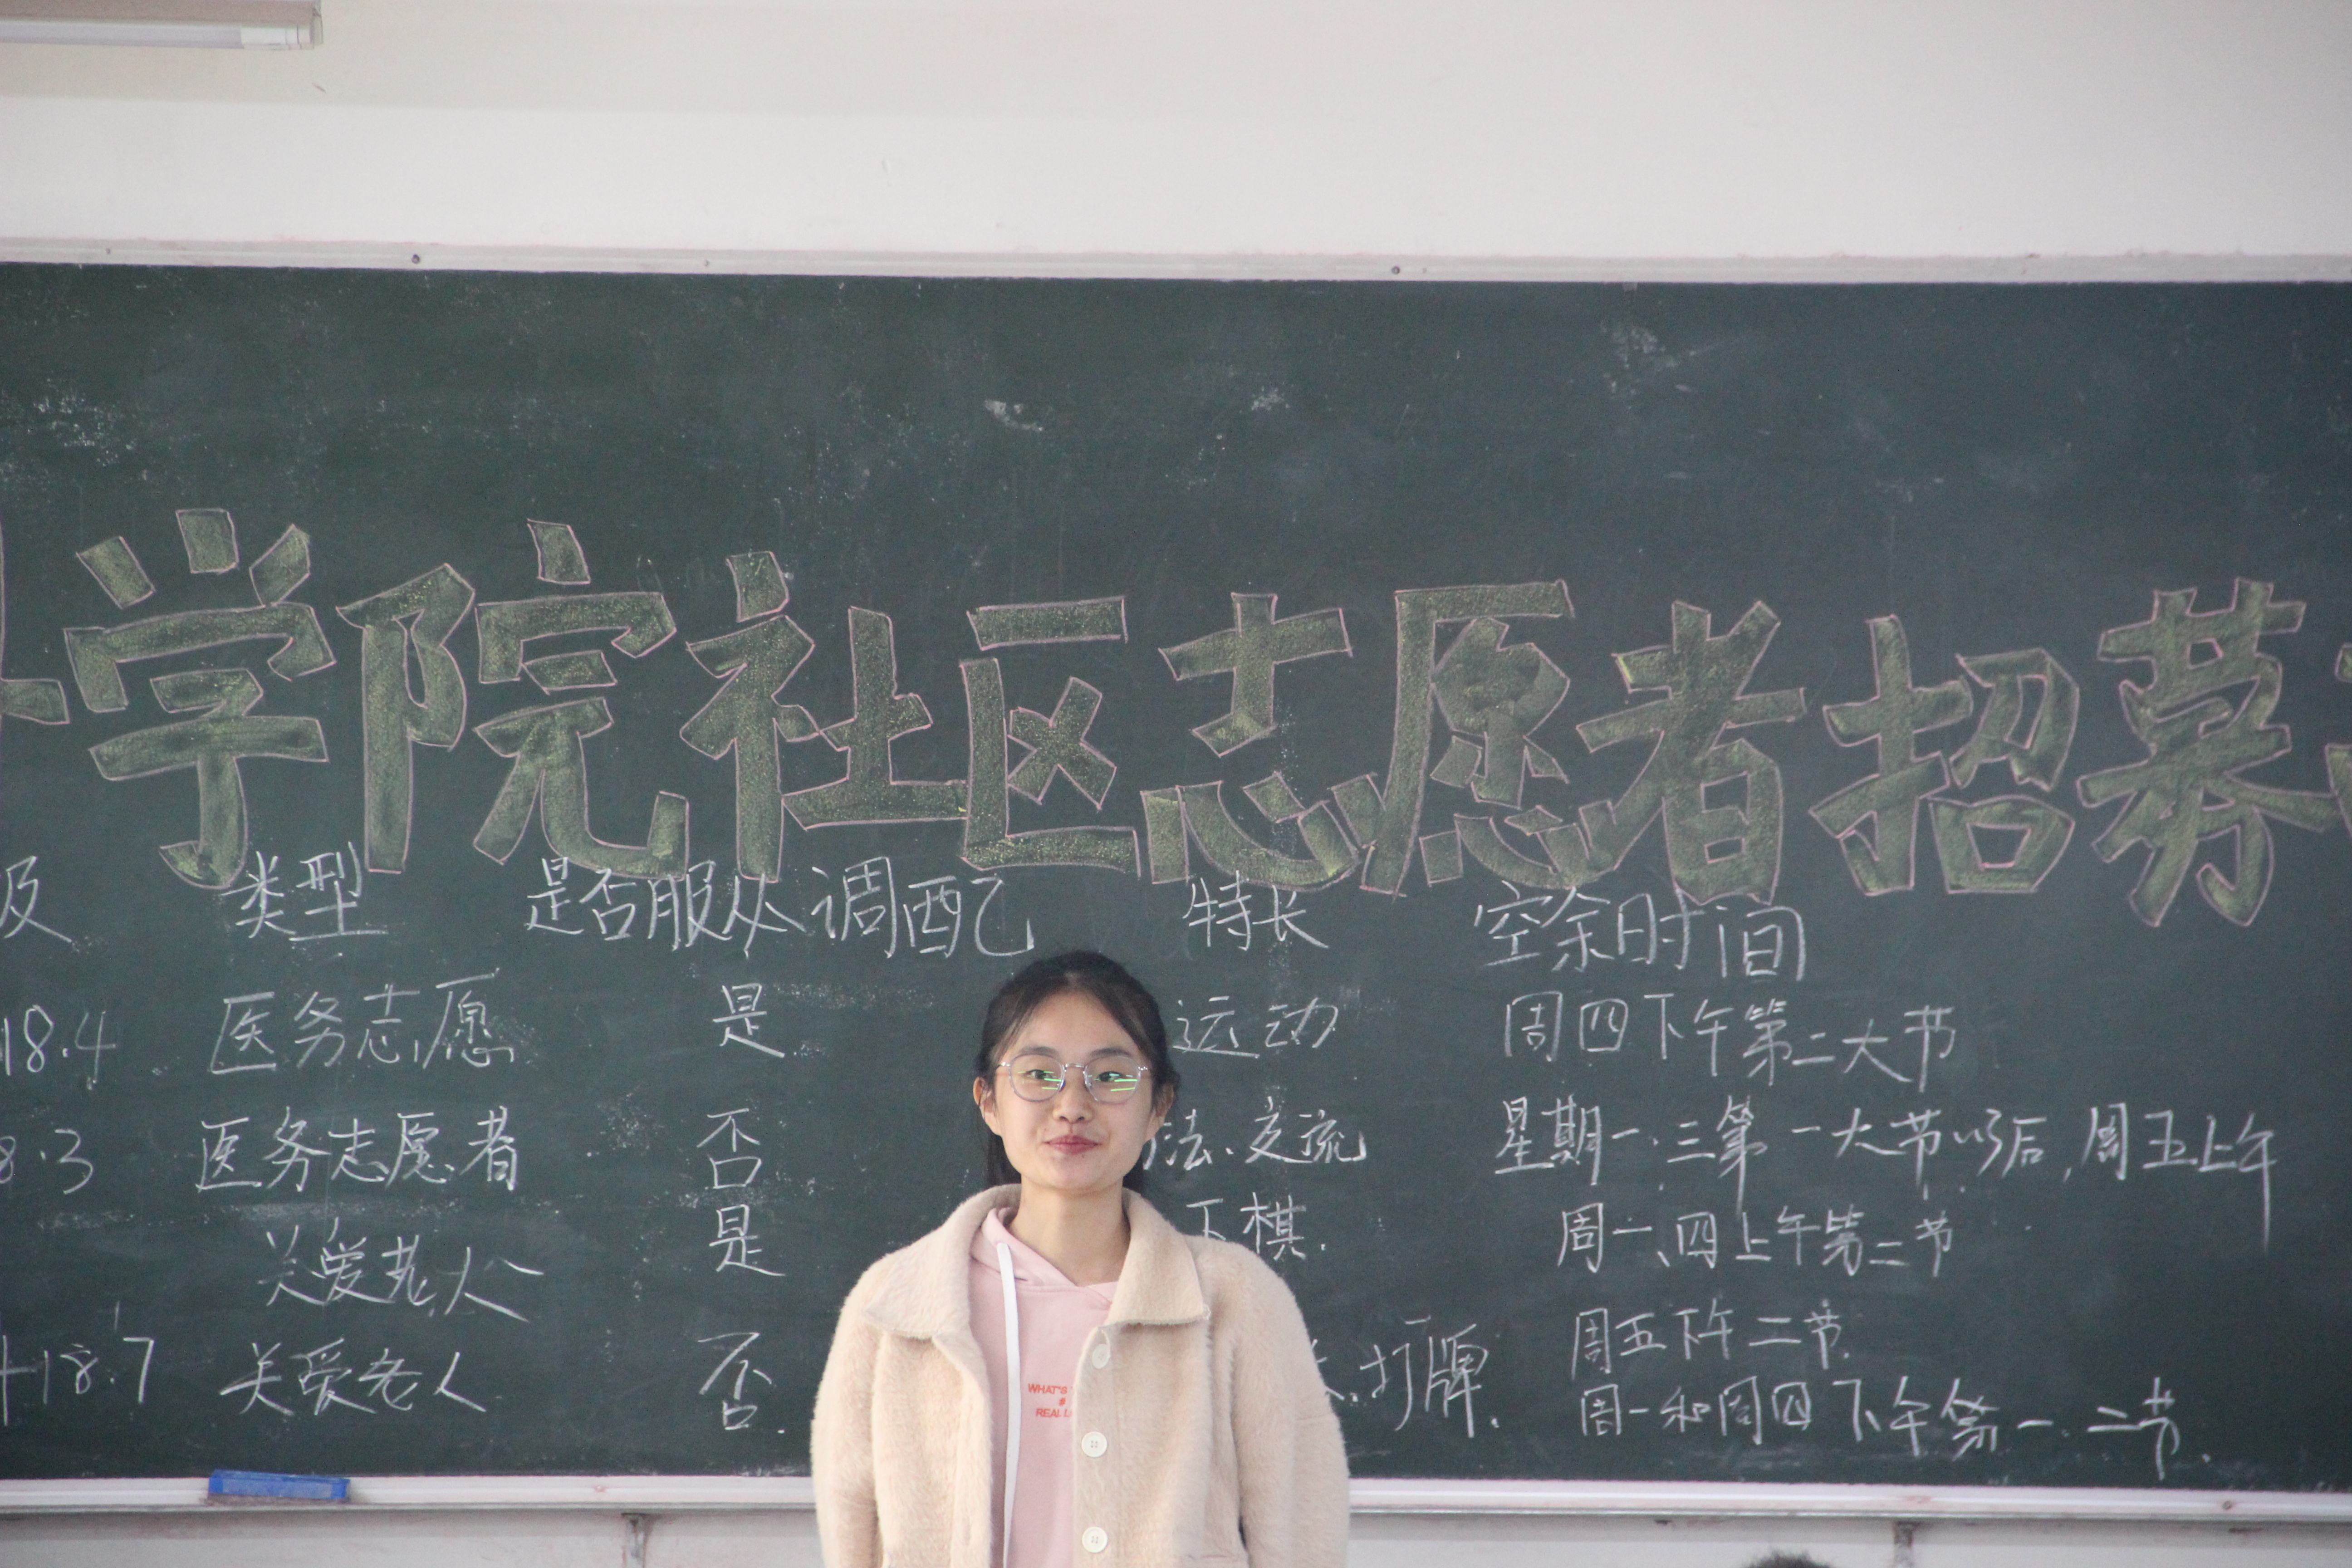 学院社区志愿者招募
及 类型 是否服从调配 特长 空余时间
18.4 医务志愿 是 运动 周四下午第二大节
8.3 医务志愿者 否 法、交流 星期一.三第一大节以后,周五上午
关爱老人 是 下棋. 周一、四上午第二节
周五下午二节.
18.7 关爱老人 否 、打牌. 周一和周四下午第一.二节.
WHAT'S
REAL